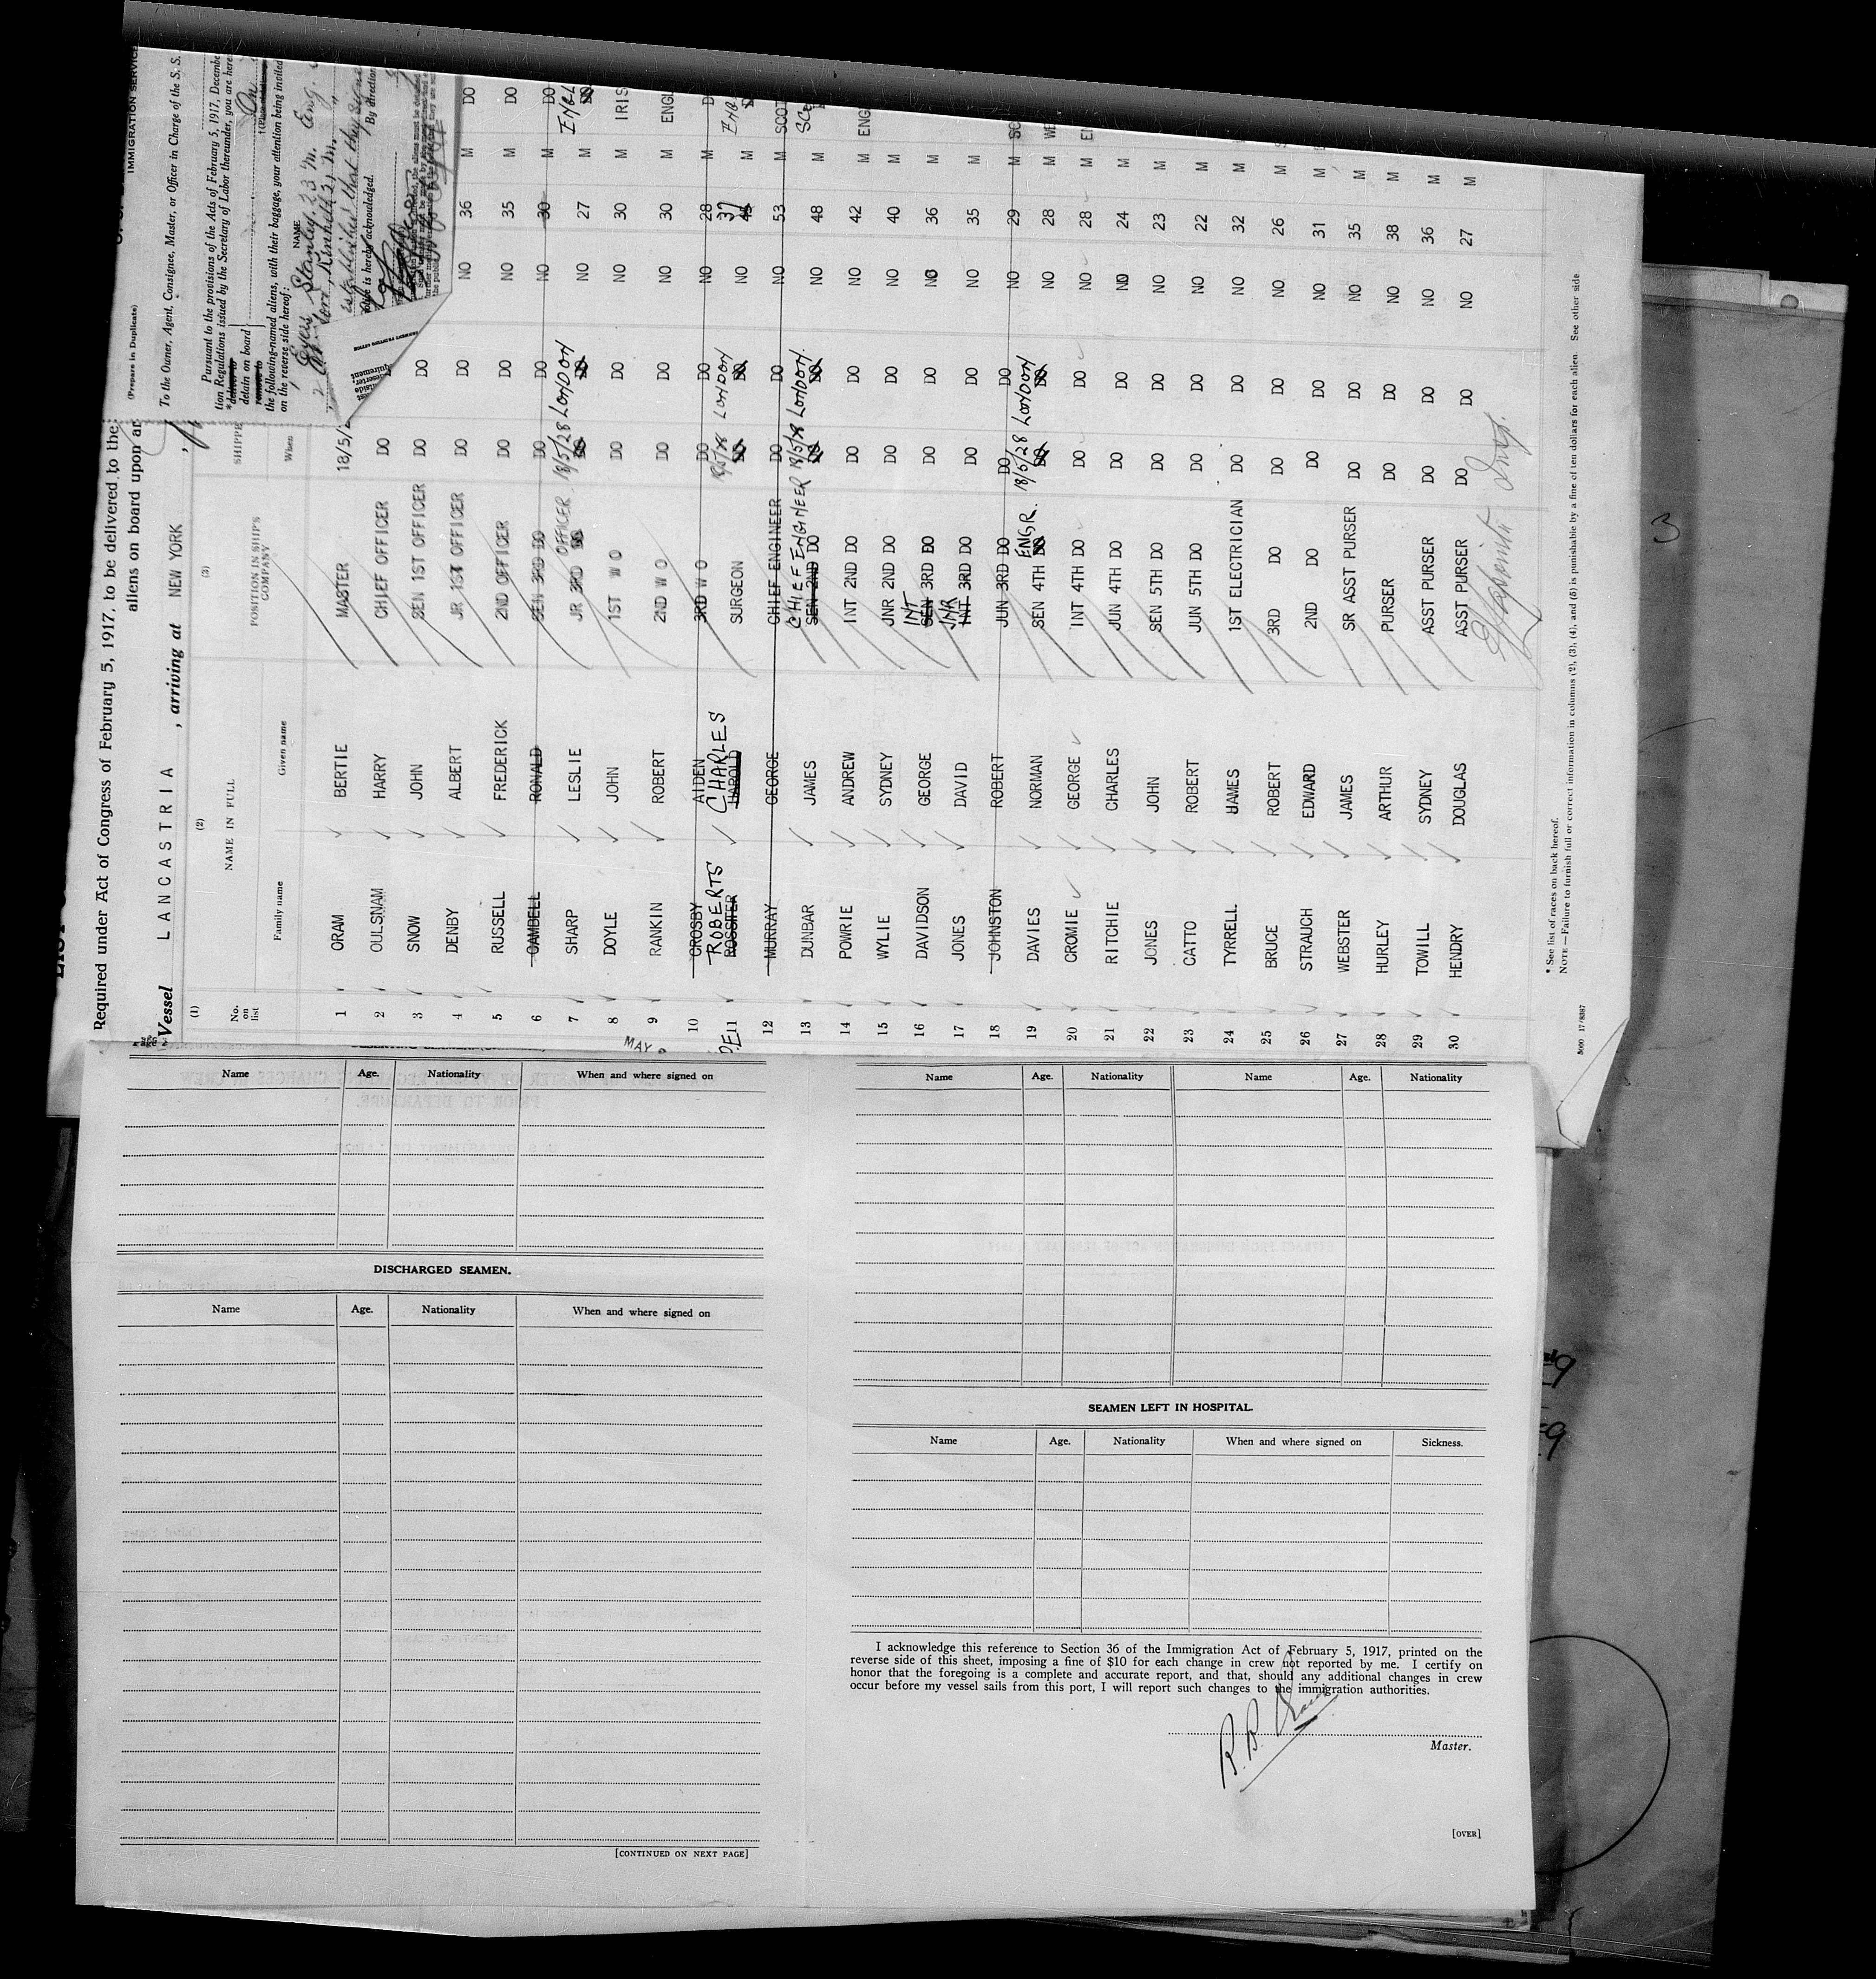 IMMIGRATION SERVICE
(Prepare in Duplicate)
To the Owner, Agent, Consignee, Master, or Officer in Charge of the S. S.
Pursuant to the provisions of the Acts of February 5, 1917, Decembe
tion Regulations issued by the Secretary of Labor thereunder, you are here
detain on board
the following-named aliens, with their baggage, your attention being invited
on the reverse side hereof:
NAME
is hereby acknowledged.
By direction
Required under Act of Congress of February 5, 1917, to be delivered to the
aliens on board upon ar
Vessel LANCASTRIA , arriving at NEW YORK ,
(1) (2) (3)
No. on list NAME IN FULL POSITION IN SHIP'S COMPANY SHIPPE
Family name Given name When
1 ORAM BERTIE MASTER 18/5/2
2 OULSNAM HARRY CHIEF OFFICER DO
3 SNOW JOHN SEN 1ST OFFICER DO DO
4 DENBY ALBERT JR 1ST OFFICER DO DO NO 36 M DO
5 RUSSELL FREDERICK 2ND OFFICER DO DO NO 35 M DO
6 CAMBELL RONALD SEN 3RD DO DO DO NO 30 M DO
7 SHARP LESLIE JR 3RD OFFICER 18/5/28 LONDON NO 27 M ENGL
8 DOYLE JOHN 1ST W O DO DO NO 30 M IRIS
9 RANKIN ROBERT 2ND W O DO DO NO 30 M ENGL
10 CROSBY AIDEN 3RD W O DO DO NO 28 M D
11 ROSSITER ROBERTS HAROLD CHARLES SURGEON 18/5/28 LONDON NO 37 M ENGL
12 MURRAY GEORGE CHIEF ENGINEER DO DO NO 53 M SCOT
13 DUNBAR JAMES SEN 2ND DO CHIEF ENGINEER 18/5/28 LONDON NO 48 M SCO
14 POWRIE ANDREW INT 2ND DO DO DO NO 42 M ENG
15 WYLIE SYDNEY JNR 2ND DO DO DO NO 40 M
16 DAVIDSON GEORGE SEN INT 3RD DO DO DO NO 36 M
17 JONES DAVID INT JNR 3RD DO DO DO NO 35 M
18 JOHNSTON ROBERT JUN 3RD DO DO DO NO 29 M SC
19 DAVIES NORMAN SEN 4TH ENGR. 18/5/28 LONDON NO 28 M WE
20 CROMIE GEORGE INT 4TH DO DO DO NO 28 M EN
21 RITCHIE CHARLES JUN 4TH DO DO DO NO 24 M
22 JONES JOHN SEN 5TH DO DO DO NO 23 M
23 CATTO ROBERT JUN 5TH DO DO DO NO 22 M
24 TYRRELL JAMES 1ST ELECTRICIAN DO DO NO 32 M
25 BRUCE ROBERT 3RD DO DO DO NO 26 M
26 STRAUCH EDWARD 2ND DO DO DO NO 31 M
27 WEBSTER JAMES SR ASST PURSER DO DO NO 35 M
28 HURLEY ARTHUR PURSER DO DO NO 38 M
29 TOWILL SYDNEY ASST PURSER DO DO NO 36 M
30 HENDRY DOUGLAS ASST PURSER DO DO NO 27 M
* See list of races on back hereof.
NOTE.—Failure to furnish full or correct information in columns (2), (3), (4), and (5) is punishable by a fine of ten dollars for each alien. See other side
MAY
3
Name Age. Nationality When and where signed on
DISCHARGED SEAMEN.
Name Age. Nationality When and where signed on
[CONTINUED ON NEXT PAGE]
Name Age. Nationality Name Age. Nationality
SEAMEN LEFT IN HOSPITAL.
Name Age. Nationality When and where signed on Sickness.
I acknowledge this reference to Section 36 of the Immigration Act of February 5, 1917, printed on the
reverse side of this sheet, imposing a fine of $10 for each change in crew not reported by me. I certify on
honor that the foregoing is a complete and accurate report, and that, should any additional changes in crew
occur before my vessel sails from this port, I will report such changes to the immigration authorities.
Master.
[OVER]